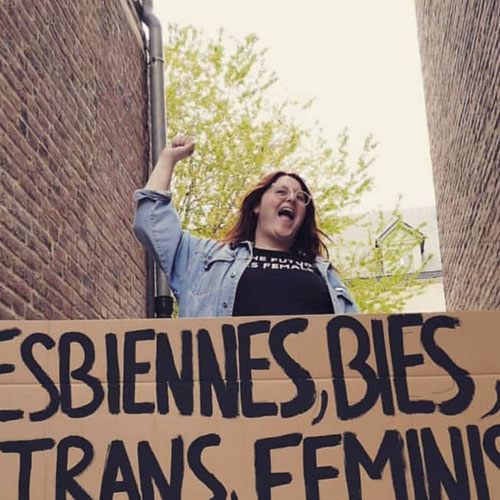 HE FUTU
S FEMAL
ESBIENNES, BIES,
TRANS, FEMINIS